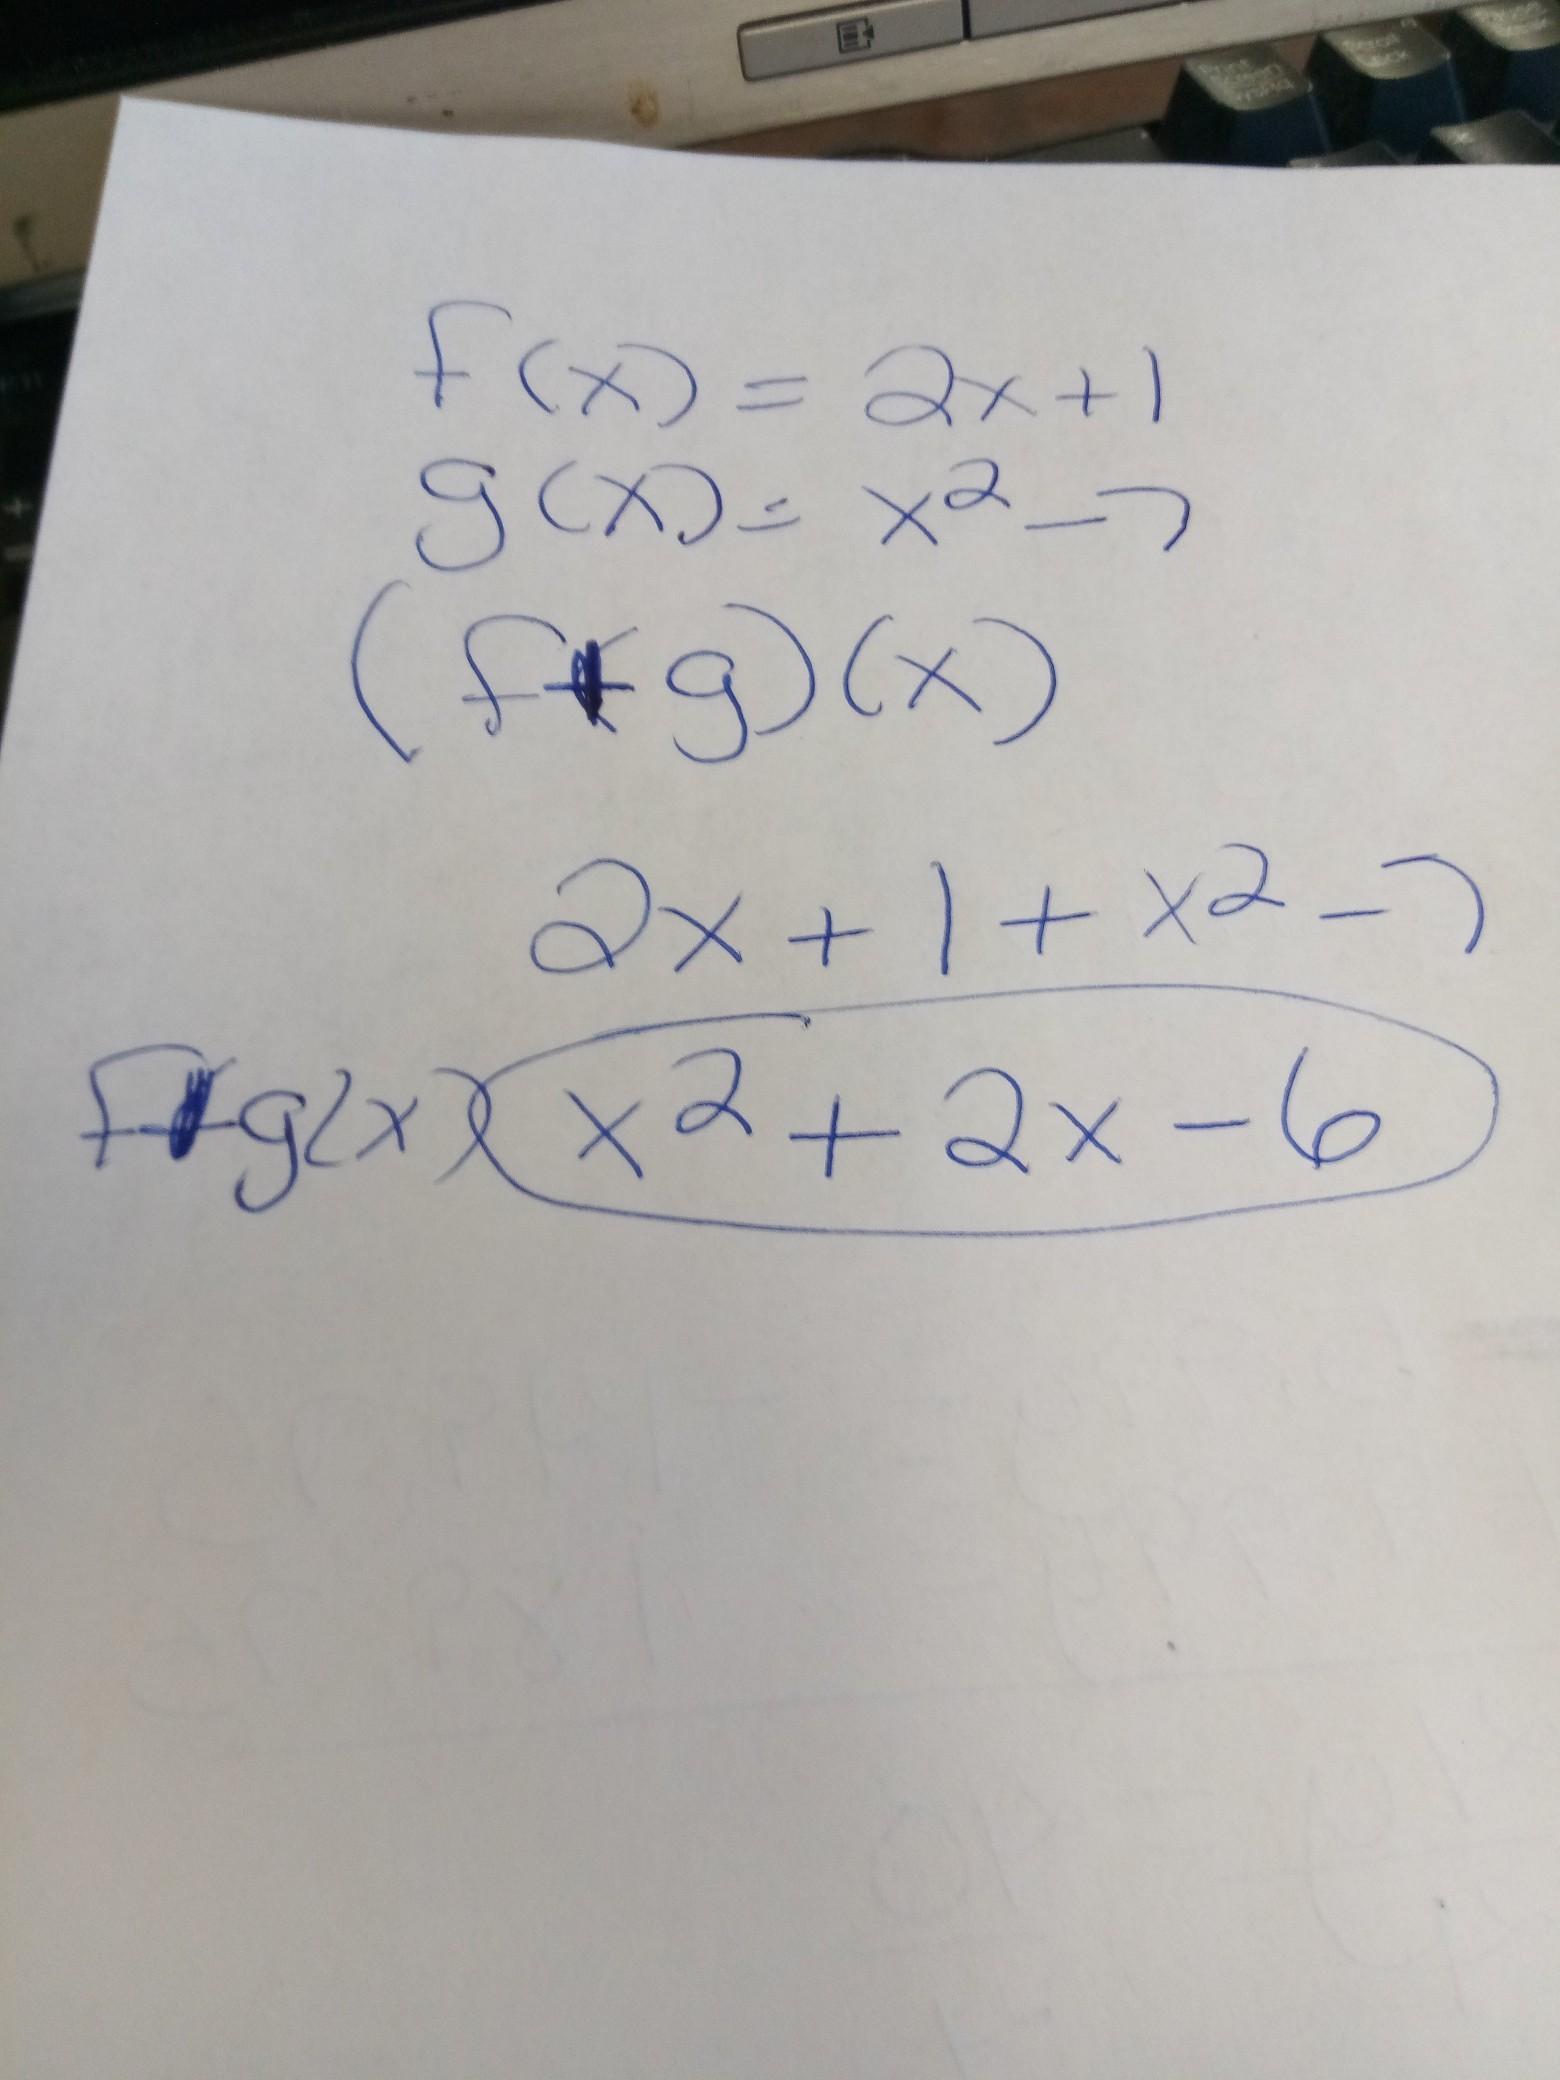 f(x) = 2x+1
g(x) = x² - 7
(f+g)(x)
2x + 1 + x² - 7
f+g(x) x² + 2x - 6